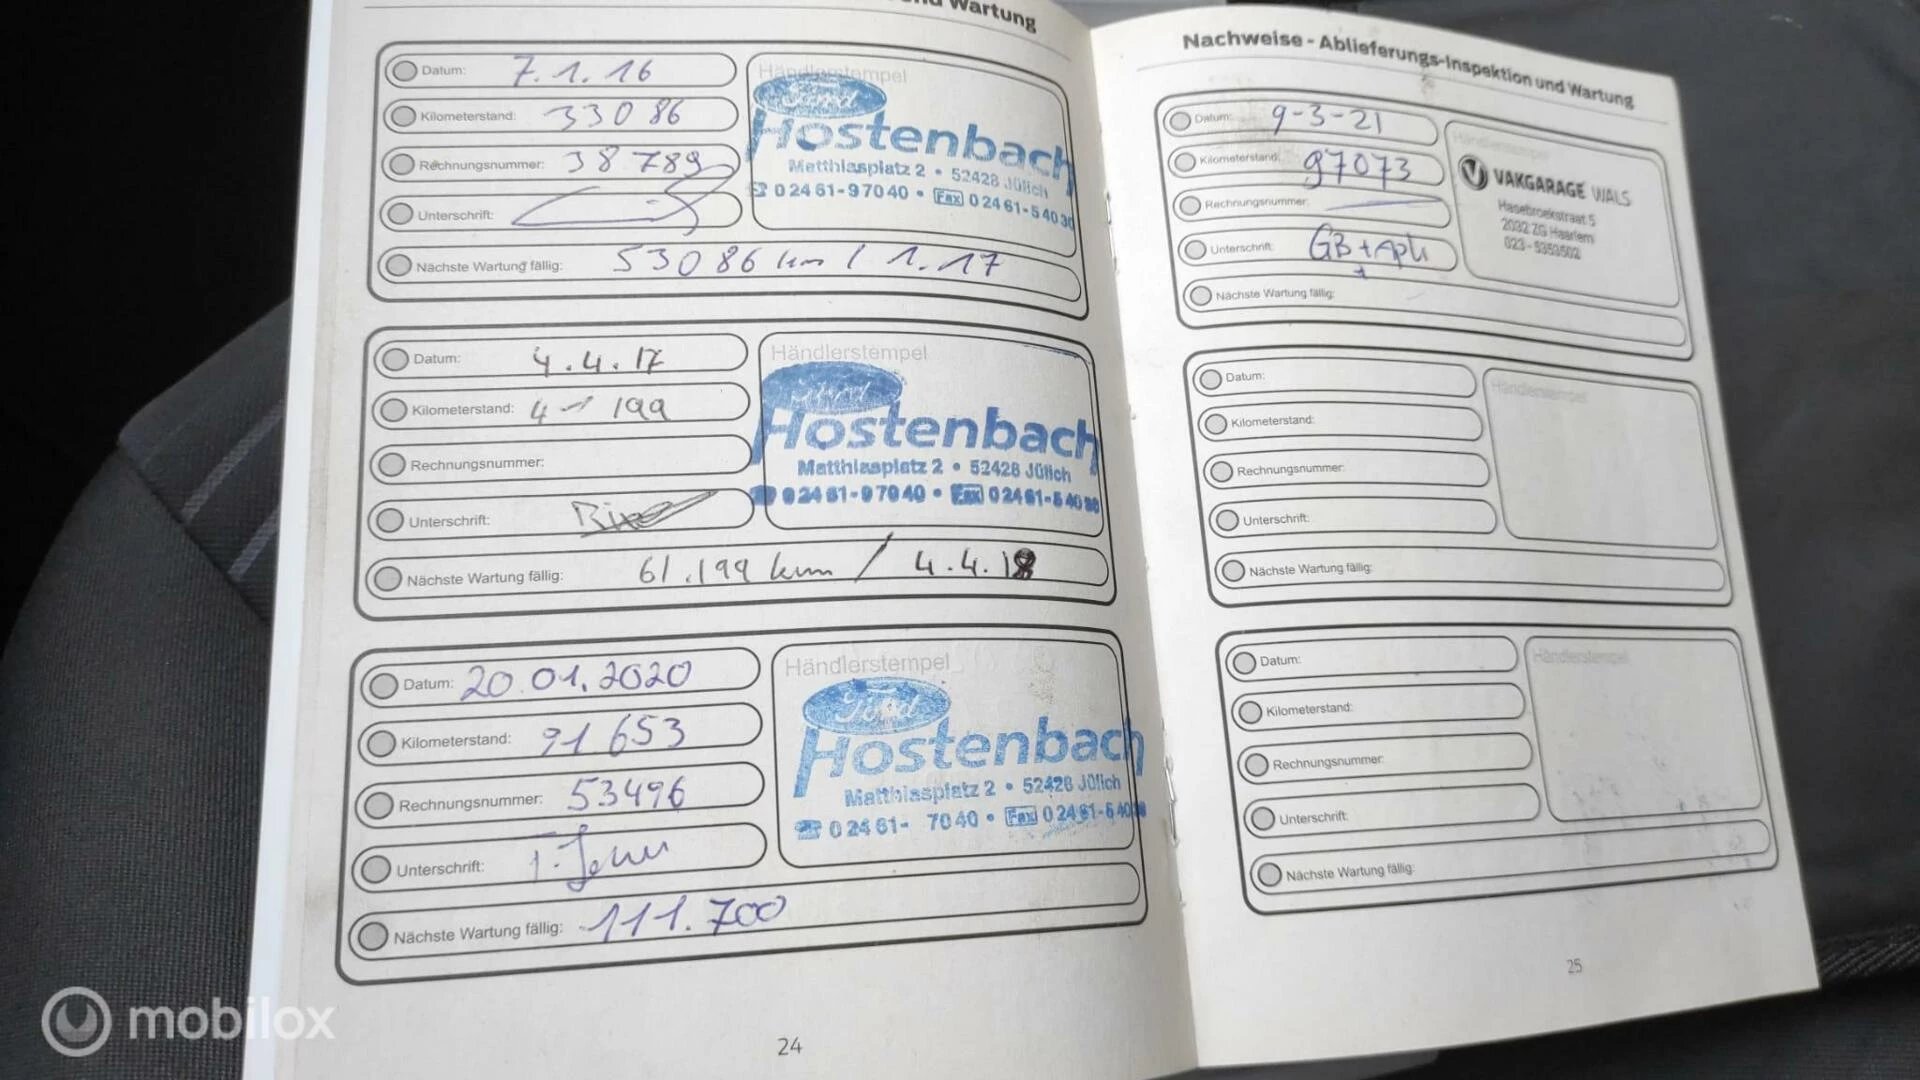 und Wartung
Datum: 7.1.16
Kilometerstand: 33086
Rechnungsnummer: 38789
Unterschrift:
Nächste Wartung fällig: 53086 km / 1.17
Händlerstempel
Ford
Hostenbach
Matthiasplatz 2 • 52428 Jülich
☎ 02461-97040 • Fax 02461-54030
Datum: 4.4.17
Kilometerstand: 199
Rechnungsnummer:
Unterschrift:
Nächste Wartung fällig: 61.199 km / 4.4.18
Händlerstempel
Ford
Hostenbach
Matthiasplatz 2 • 52428 Jülich
☎ 02461-97040 • Fax 02461-54030
Datum: 20.01.2020
Kilometerstand: 91653
Rechnungsnummer: 53496
Unterschrift:
Nächste Wartung fällig: 111.700
Händlerstempel
Ford
Hostenbach
Matthiasplatz 2 • 52428 Jülich
☎ 02461- 7040 • Fax 02461-540
24
Nachweise - Ablieferungs-Inspektion und Wartung
Datum: 9-3-21
Kilometerstand: 97073
Rechnungsnummer:
Unterschrift: GB +
Nächste Wartung fällig:
Händlerstempel
VAKGARAGE WALS
Hasebroekstraat 5
2032 ZG Haarlem
023-5353502
Datum:
Kilometerstand:
Rechnungsnummer:
Unterschrift:
Nächste Wartung fällig:
Händlerstempel
Datum:
Kilometerstand:
Rechnungsnummer:
Unterschrift:
Nächste Wartung fällig:
Händlerstempel
25
mobilox